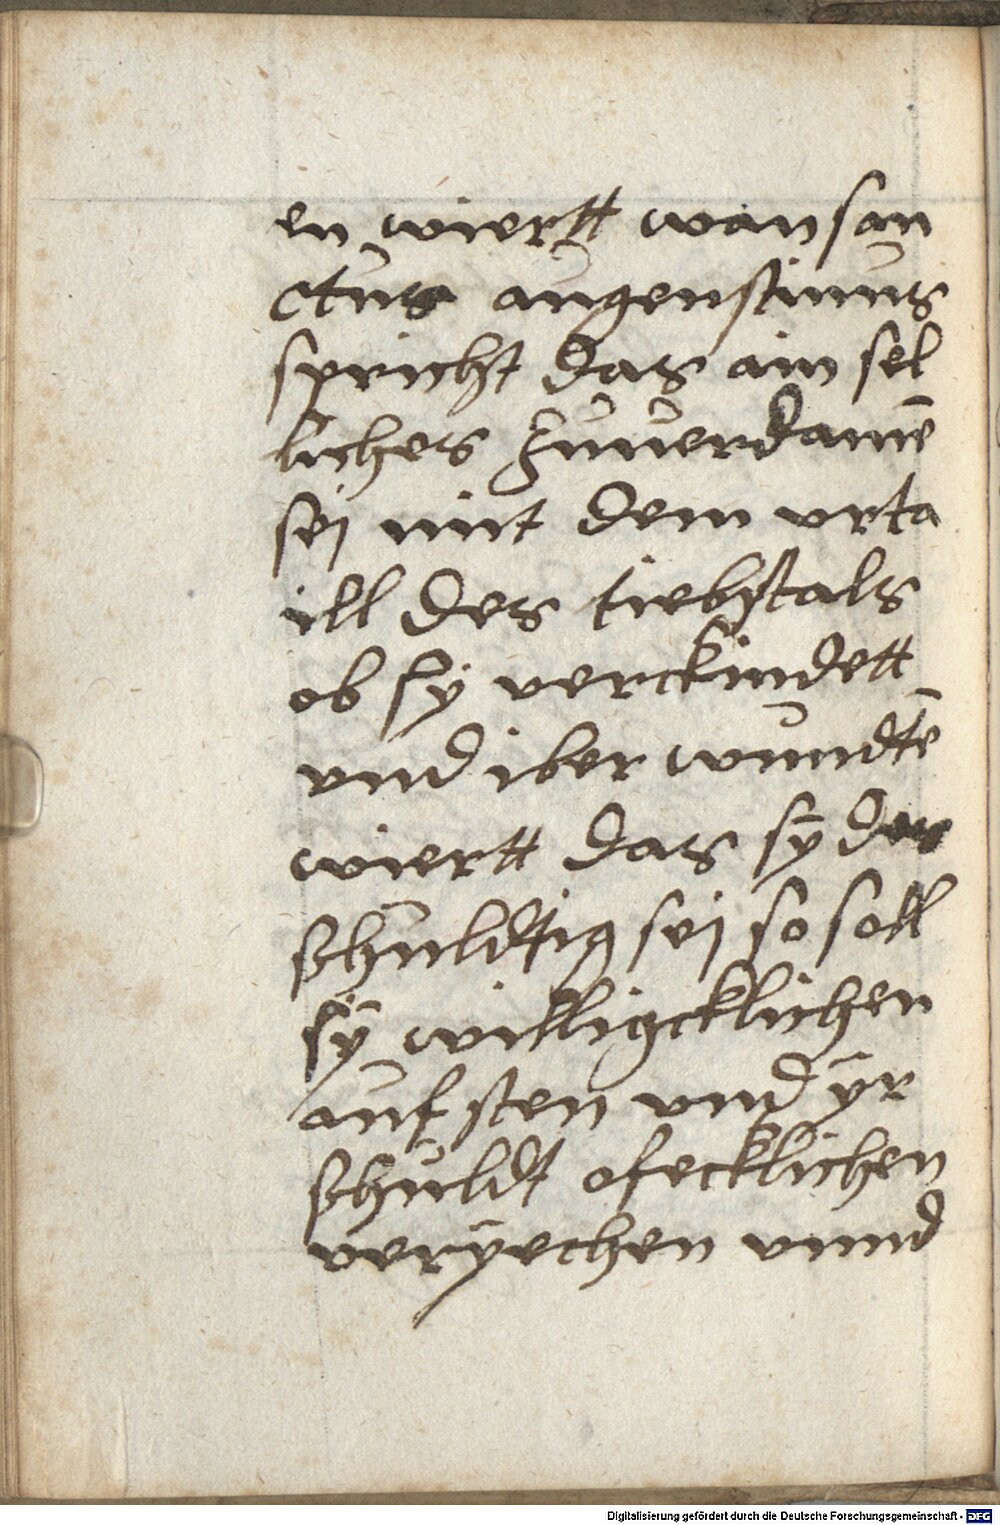 en wiertt wan san
ctus augenstinus
spricht das ain sel
liches zuuerdamē
sei mit dem vrta
ill des tiebstals
ob sÿ verckindett
vnd iber wundtē
wiertt das sÿ des
schuldtig sei so soll
sÿ willigcklichen
auf sten vnd ÿr
schuldt ofecklichen
veryechen vnnd
Digitalisierung gefördert durch die Deutsche Forschungsgemeinschaft - DFG